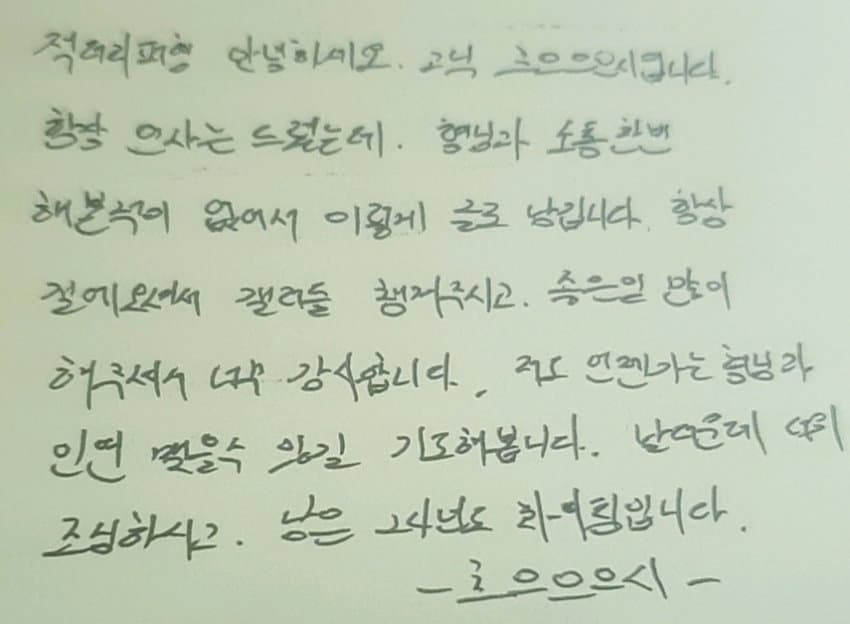 적터리퍼형 안녕하세요. 고닉 흐으으으시입니다.
항상 인사는 드렸는데. 형님과 소통한번
해본적이 없어서 이렇게 글로 남깁니다. 항상
걸에있어서 갤러들 챙겨주시고. 좋은일 많이
해주셔서 너무 감사합니다. 저도 언젠가는 형님과
인연 맺을수 있길 기도해봅니다. 날더운데 더위
조심하시고. 남은 24년도 화이팅입니다.
- 흐으으으시 -